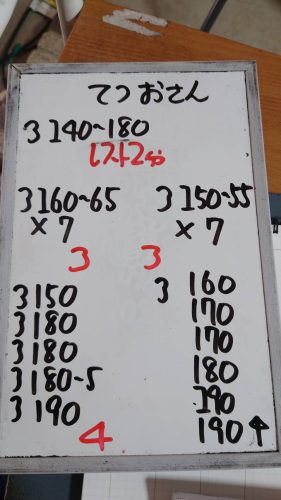 てつおさん
3 140~180
レスト2分
3 160~65
× 7
3
3 150~55
× 7
3
3 150
3 180
3 180
3 180~5
3 190
4
3 160
170
170
180
190
190↑